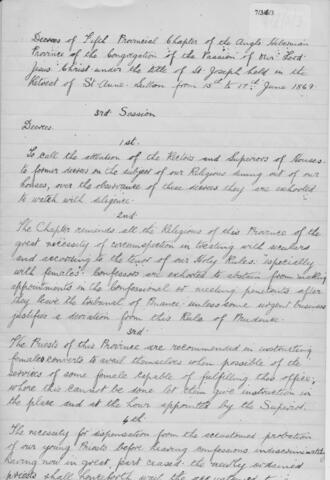 7/3/6/3
Decrees of Fifth Provincial Chapter of the Anglo Hibernian
Province of the Congregation of the Passion of Our Lord
Jesus Christ under the title of St Joseph held in the
Retreat of St Anne. Sutton from 15th to 17th June 1869.
3rd Session
Decrees.
1st.
To call the attention of the Rectors and Superiors of Houses
to former decrees on the subject of our Religious dining out of our
houses, over the observance of these decrees they are exhorted
to watch with diligence.
2nd
The Chapter reminds all the Religious of this Province of the
great necessity of circumspection in treating with seculars
and according to the tenor of our Holy Rules "especially
with females". Confessors are exhorted to abstain from making
appointments in the confessional or meeting penitents after
they leave the tribunal of Penance unless some urgent business
justifies a deviation from this Rule of Prudence.
3rd
The Priests of this Province are recommended in instructing
female converts to avail themselves when possible of the
services of some female capable of fulfilling this office,
where this cannot be done let them give instruction in
the place and at the hour appointed by the Superior.
4th
The necessity for dispensation from the accustomed probation
of our young Priests before hearing confessions indiscriminately
having now in great part ceased the newly ordained
priests shall henceforth wait the